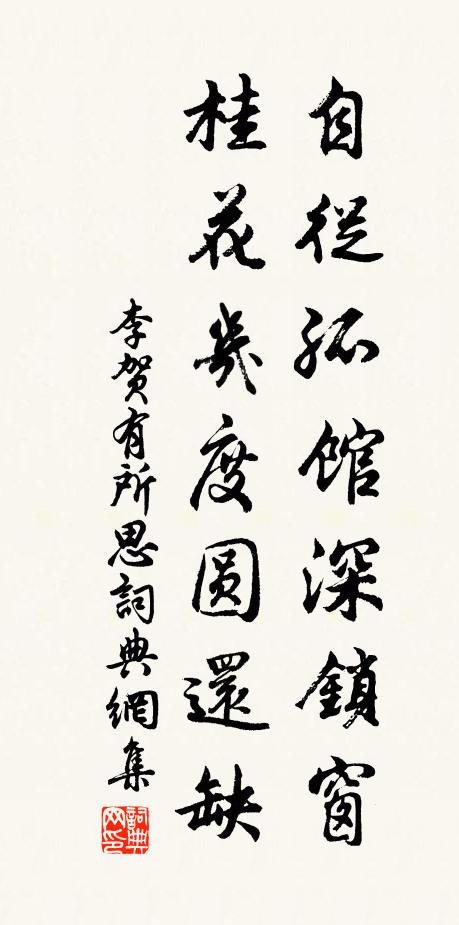 自從孤館深鎖窗
桂花幾度圓還缺
李賀有所思詞典網集
詞典网印